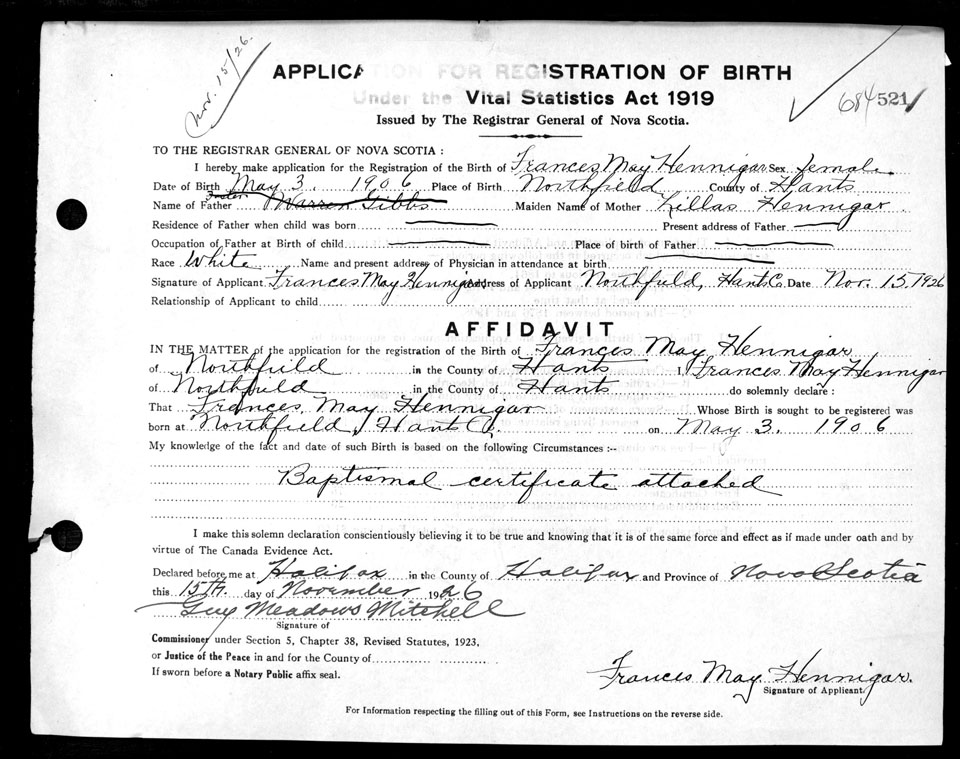 Nov. 15/26.
APPLICATION FOR REGISTRATION OF BIRTH
Under the Vital Statistics Act 1919
684 521
Issued by The Registrar General of Nova Scotia.
TO THE REGISTRAR GENERAL OF NOVA SCOTIA :
I hereby make application for the Registration of the Birth of Frances May Hennigar Sex female
Date of Birth May 3. 1906 Place of Birth Northfield County of Hants
Name of Father Warren Gibbs Maiden Name of Mother Zillas Hennigar
Residence of Father when child was born Present address of Father
Occupation of Father at Birth of child Place of birth of Father
Race White Name and present address of Physician in attendance at birth
Signature of Applicant Frances May Hennigar Address of Applicant Northfield, Hants Co. Date Nov. 15, 1926
Relationship of Applicant to child
AFFIDAVIT
IN THE MATTER of the application for the registration of the Birth of Frances May Hennigar
of Northfield in the County of Hants I, Frances May Hennigar
of Northfield in the County of Hants do solemnly declare :
That Frances May Hennigar Whose Birth is sought to be registered was
born at Northfield, Hants Co. on May 3. 1906
My knowledge of the fact and date of such Birth is based on the following Circumstances :--
Baptismal certificate attached
I make this solemn declaration conscientiously believing it to be true and knowing that it is of the same force and effect as if made under oath and by
virtue of The Canada Evidence Act.
Declared before me at Halifax in the County of Halifax and Province of Nova Scotia
this 15th day of November 1926
Guy Meadows Mitchell
Signature of
Commissioner under Section 5, Chapter 38, Revised Statutes, 1923,
or Justice of the Peace in and for the County of
If sworn before a Notary Public affix seal.
Frances May Hennigar.
Signature of Applicant
For Information respecting the filling out of this Form, see Instructions on the reverse side.